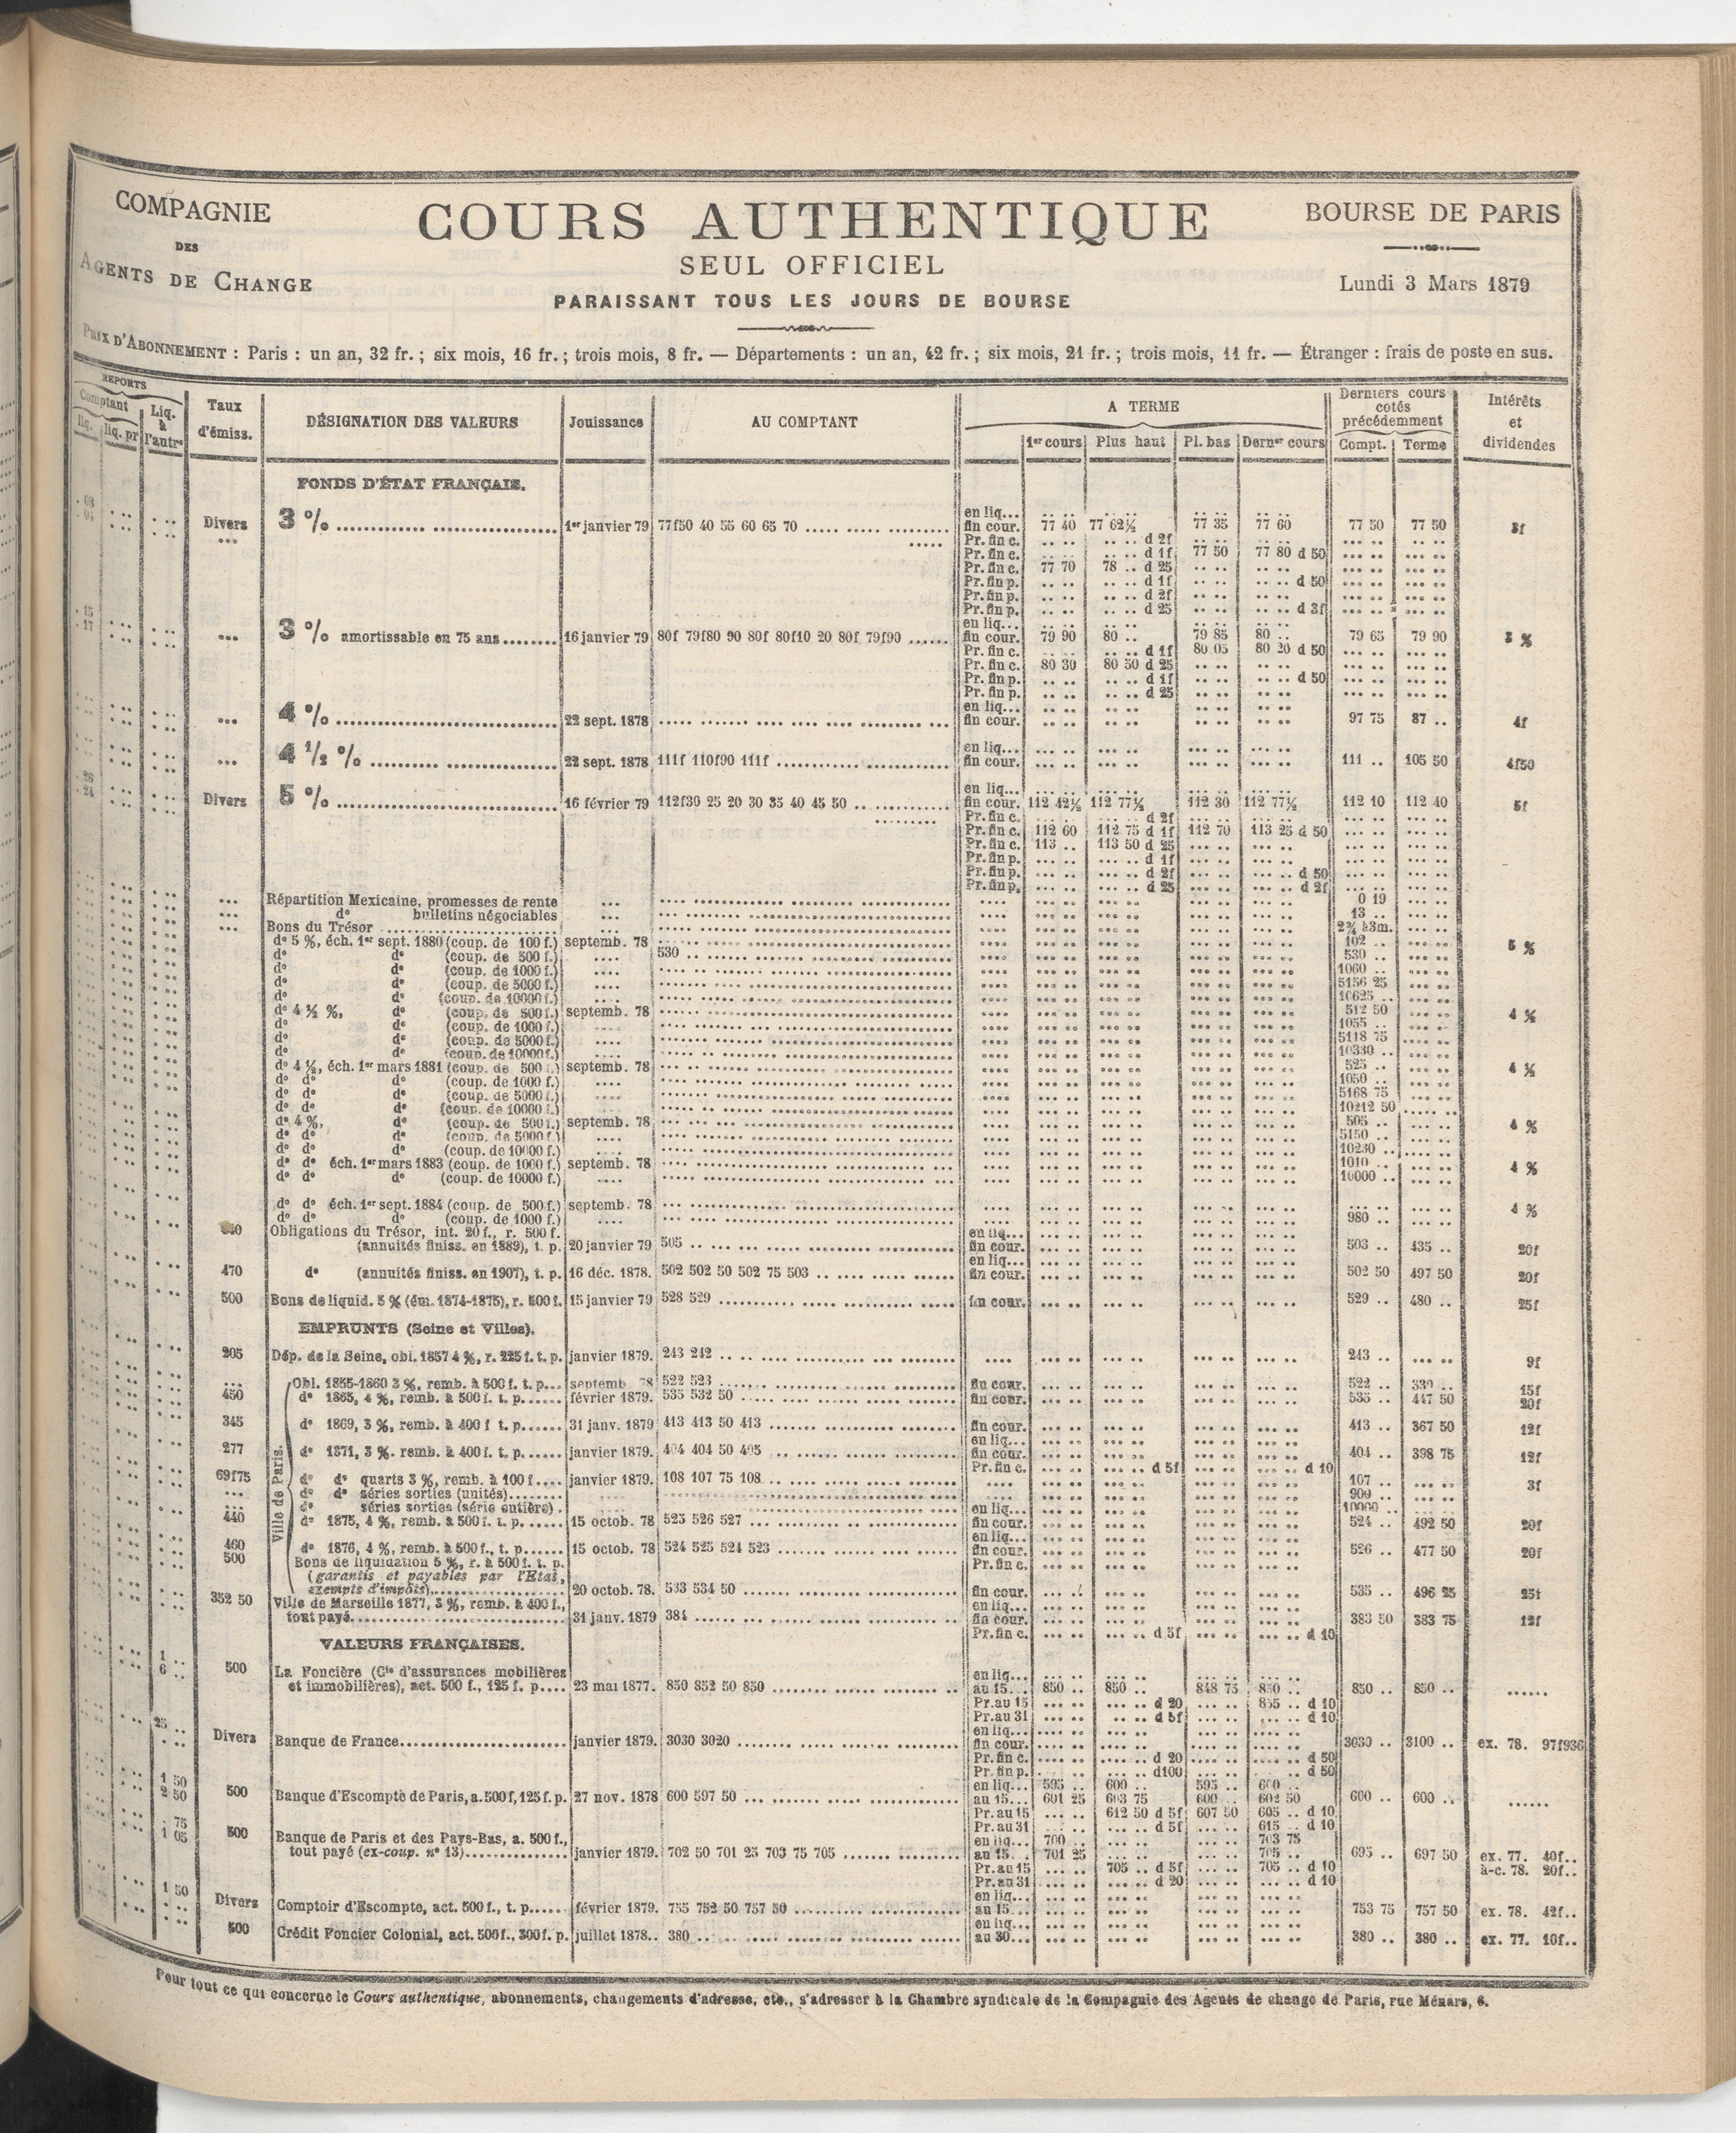 COMPAGNIE
DES
AGENTS DE CHANGE
COURS AUTHENTIQUE
SEUL OFFICIEL
PARAISSANT TOUS LES JOURS DE BOURSE
BOURSE DE PARIS
Lundi 3 Mars 1879
PRIX D'ABONNEMENT : Paris : un an, 32 fr. ; six mois, 16 fr. ; trois mois, 8 fr. — Départements : un an, 42 fr. ; six mois, 21 fr. ; trois mois, 11 fr. — Étranger : frais de poste en sus.
REPORTS
Comptant
liq. liq. pr
Liq. à l'autre
Taux d'émiss.
DÉSIGNATION DES VALEURS
Jouissance
AU COMPTANT
A TERME
1er cours Plus haut Pl. bas Derner cours
Derniers cours cotés précédemment
Compt. Terme
Intérêts et dividendes
FONDS D'ÉTAT FRANÇAIS.
en liq...
Divers 3 % 1er janvier 79 77f50 40 55 60 65 70 fin cour. 77 40 77 62½ 77 35 77 60 77 50 77 50 3f
Pr. fin c. d 2f
Pr. fin c. d 1f 77 50 77 80 d 50
Pr. fin c. 77 70 78 .. d 25
Pr. fin p. d 1f d 50
Pr. fin p. d 2f
Pr. fin p. d 25 d 3f
en liq...
3 % amortissable en 75 ans 16 janvier 79 80f 79f80 90 80f 80f10 20 80f 79f90 fin cour. 79 90 80 .. 79 85 80 .. 79 65 79 90 3 %
Pr. fin c. d 1f 80 05 80 20 d 50
Pr. fin c. 80 30 80 50 d 25
Pr. fin p. d 1f d 50
Pr. fin p. d 25
en liq...
4 % 22 sept. 1878 fin cour. 97 75 87 .. 4f
en liq...
4 1/2 % 22 sept. 1878 111f 110f90 111f fin cour. 111 .. 105 50 4f50
en liq...
Divers 5 % 16 février 79 112f30 25 20 30 35 40 45 50 fin cour. 112 42½ 112 77½ 112 30 112 77½ 112 10 112 40 5f
Pr. fin c. d 2f
Pr. fin c. 112 60 112 75 d 1f 112 70 113 25 d 50
Pr. fin c. 113 .. 113 50 d 25
Pr. fin p. d 1f
Pr. fin p. d 2f d 50
Pr. fin p. d 25 d 2f
Répartition Mexicaine, promesses de rente 0 19
do bulletins négociables 13 ..
Bons du Trésor 2¾ à3m.
do 5 %, éch. 1er sept. 1880 (coup. de 100 f.) septemb. 78 102 .. 5 %
do do (coup. de 500 f.) 530 .. 530 ..
do do (coup. de 1000 f.) 1060 ..
do do (coup. de 5000 f.) 5156 25
do do (coup. de 10000 f.) 10625 ..
do 4 ½ %, do (coup. de 500 f.) septemb. 78 512 50 4 ½
do do (coup. de 1000 f.) 1055 ..
do do (coup. de 5000 f.) 5118 75
do do (coup. de 10000 f.) 10330 ..
do 4 ½, éch. 1er mars 1881 (coup. de 500 f.) septemb. 78 525 .. 4 ½
do do do (coup. de 1000 f.) 1050 ..
do do do (coup. de 5000 f.) 5168 75
do do do (coup. de 10000 f.) 10212 50
do 4 %, do (coup. de 500 f.) septemb. 78 505 .. 4 %
do do do (coup. de 5000 f.) 5150 ..
do do do (coup. de 10000 f.) 10230 ..
do do éch. 1er mars 1883 (coup. de 1000 f.) septemb. 78 1010 .. 4 %
do do do (coup. de 10000 f.) 10000 ..
do do éch. 1er sept. 1884 (coup. de 500 f.) septemb. 78 4 %
do do do (coup. de 1000 f.) 980 ..
Obligations du Trésor, int. 20 f., r. 500 f. en liq...
(annuités finiss. en 1889), t. p. 20 janvier 79 505 .. fin cour. 503 .. 435 .. 20f
en liq...
470 do (annuités finiss. en 1907), t. p. 16 déc. 1878. 502 502 50 502 75 503 .. fin cour. 502 50 497 50 20f
500 Bons de liquid. 5 % (ém. 1874-1875), r. 500 f. 15 janvier 79 528 529 fin cour. 529 .. 480 .. 25f
EMPRUNTS (Seine et Villes).
205 Dép. de la Seine, obl. 1857 4 %, r. 225 f. t. p. janvier 1879. 243 242 .. 243 .. 9f
Ville de Paris.
Obl. 1855-1860 3 %, remb. à 500 f. t. p... septemb 78 522 523 fin cour. 522 .. 330 .. 15f
450 do 1865, 4 %, remb. à 500 f. t. p. février 1879. 535 532 50 fin cour. 535 .. 447 50 20f
345 do 1869, 3 %, remb. à 400 f t. p. 31 janv. 1879 413 413 50 413 fin cour. 413 .. 367 50 12f
en liq...
277 do 1871, 3 %. remb. à 400 f. t. p. janvier 1879. 404 404 50 405 fin cour. 404 .. 398 75 12f
Pr. fin c. d 5f d 10
69f75 do do quarts 3 %, remb. à 100 f janvier 1879. 108 107 75 108 107 .. 3f
do do séries sorties (unités) 900 ..
do séries sorties (série entière) 10000 ..
en liq...
440 do 1875, 4 %, remb. à 500 f. t. p. 15 octob. 78 525 526 527 fin cour. 524 .. 492 50 20f
en liq...
460 do 1876, 4 %, remb. à 500 f., t. p. 15 octob. 78 524 525 524 523 fin cour. 526 .. 477 50 20f
500 Bons de liquidation 5 %, r. à 500 f. t. p. Pr. fin c.
(garantis et payables par l'Etat,
exempts d'impôts) 20 octob. 78. 533 534 50 fin cour. 535 .. 496 25 25f
352 50 Ville de Marseille 1877, 3 %, remb. à 400 f., en liq...
tout payé 31 janv. 1879 384 fin cour. 383 50 383 75 12f
Pr. fin c. d 5f d 10
VALEURS FRANÇAISES.
1 ..
6 .. 500 La Foncière (Cie d'assurances mobilières en liq...
et immobilières), act. 500 f., 125 f. p. 23 mai 1877. 850 852 50 850 au 15 850 .. 850 .. 848 75 850 .. 850 .. 850 ..
Pr. au 15 d 20 855 .. d 10
Pr. au 31 d 5f d 10
25 .. en liq...
Divers Banque de France janvier 1879. 3030 3020 fin cour. 3030 .. 3100 .. ex. 78. 97f936
Pr. fin c. d 20 d 50
Pr. fin p. d100 d 50
1 50 en liq... 595 .. 600 .. 595 .. 600 ..
2 50 500 Banque d'Escompte de Paris, a. 500 f, 125 f. p. 27 nov. 1878 600 597 50 au 15 601 25 603 75 600 .. 602 50 600 .. 600 ..
Pr. au 15 612 50 d 5f 607 50 605 .. d 10
75 Pr. au 31 d 5f 615 .. d 10
1 05 500 Banque de Paris et des Pays-Bas, a. 500 f., en liq... 700 .. 703 75
tout payé (ex-coup. no 13) janvier 1879. 702 50 701 25 703 75 705 au 15 701 25 705 .. 695 .. 697 50 ex. 77. 40f..
Pr. au 15 705 .. d 5f 705 .. d 10 à-c. 78. 20f..
Pr. au 31 d 20 d 10
1 50 en liq...
Divers Comptoir d'Escompte, act. 500 f., t. p. février 1879. 755 752 50 757 50 au 15 753 75 757 50 ex. 78. 42f..
en liq...
500 Crédit Foncier Colonial, act. 500 f., 300 f. p. juillet 1878.. 380 .. au 30 380 .. 380 .. ex. 77. 10f..
Pour tout ce qui concerne le Cours authentique, abonnements, changements d'adresse, etc., s'adresser à la Chambre syndicale de la Compagnie des Agents de change de Paris, rue Ménars, 6.